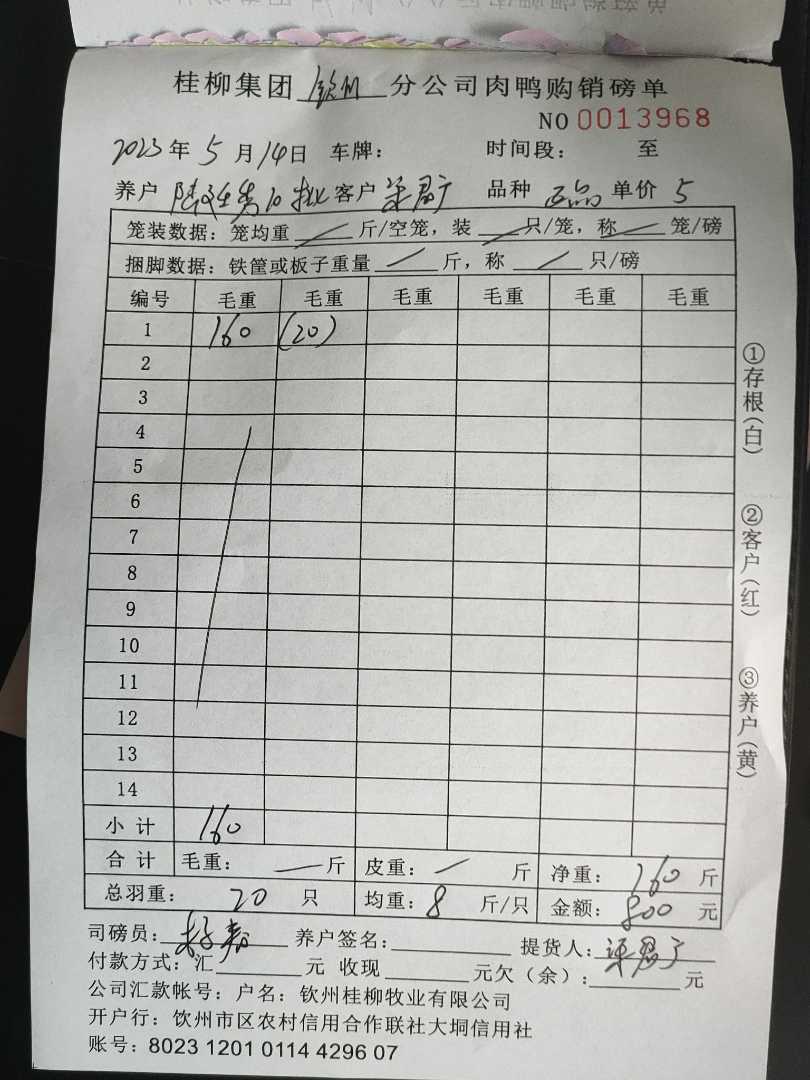 桂柳集团 钦州 分公司肉鸭购销磅单
NO 0013968
2023年5月14日 车牌: 时间段: 至
养户 陆 10批 客户 品种 正品 单价 5
笼装数据: 笼均重 斤/空笼, 装 只/笼, 称 笼/磅
捆脚数据: 铁筐或板子重量 斤, 称 只/磅
编号 毛重 毛重 毛重 毛重 毛重 毛重
1 160 (20)
2
3
4
5
6
7
8
9
10
11
12
13
14
小计 160
合计 毛重: 斤 皮重: 斤 净重: 160 斤
总羽重: 20 只 均重: 8 斤/只 金额: 800 元
司磅员: 养户签名: 提货人:
付款方式: 汇 元 收现 元欠(余): 元
公司汇款帐号: 户名: 钦州桂柳牧业有限公司
开户行: 饮州市区农村信用合作联社大垌信用社
账号: 8023 1201 0114 4296 07
①存根(白)
②客户(红)
③养户(黄)